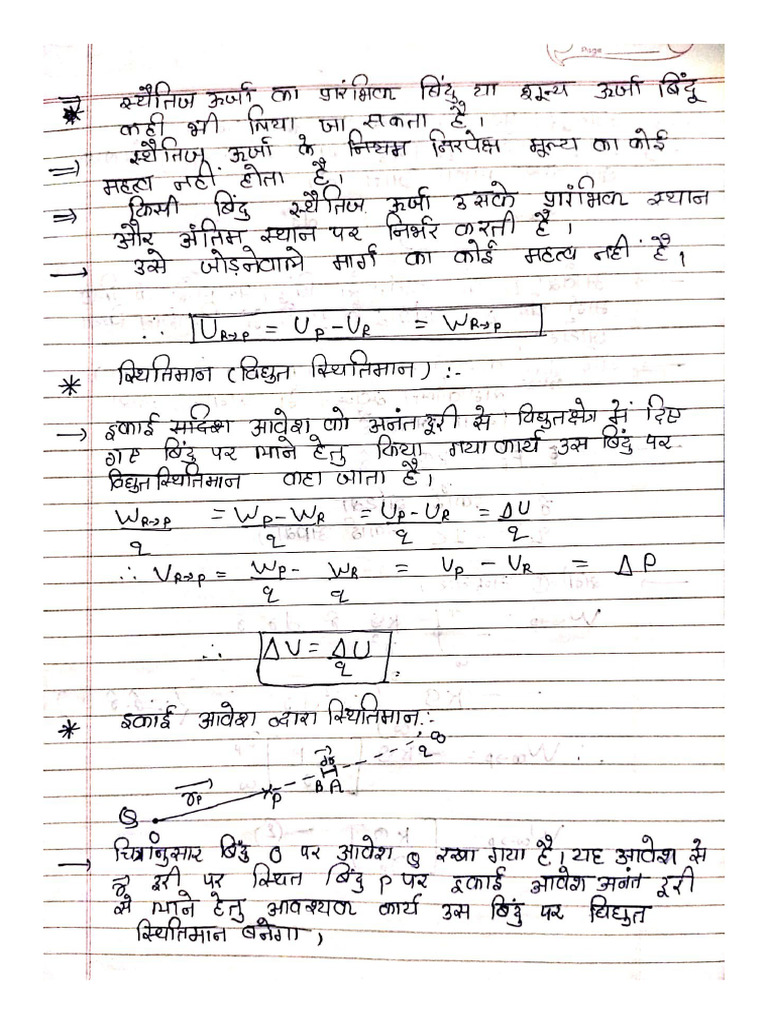 Page
* स्थैतिज ऊर्जा का प्रारंभिक बिंदु या शून्य ऊर्जा बिंदू
कही भी लिया जा सकता है।
⇒ स्थैतिज ऊर्जा के नियम निरपेक्ष मूल्य का कोई
महत्व नहीं होता है।
⇒ किसी बिंदु स्थैतिज ऊर्जा उसके प्रारंभिक स्थान
और अंतिम स्थान पर निर्भर करती है।
→ उसे जोड़नेवाले मार्ग का कोई महत्व नही है।
∴ U_{R→P} = U_P - U_R = W_{R→P}
* स्थितिमान (विद्युत स्थितिमान) :-
→ इकाई सदिश आवेश को अनंत दूरी से विद्युतक्षेत्र में दिए
गए बिंदु पर लाने हेतु किया गया कार्य उस बिंदु पर
विद्युत स्थितिमान कहा जाता है।
W_{R→P}/q = W_P - W_R/q = U_P - U_R/q = ΔU/q
∴ V_{R→P} = W_P/q - W_R/q = V_P - V_R = ΔP
∴ ΔV = ΔU/q
* इकाई आवेश द्वारा स्थितिमान :-
∞
q
dr
B A
r_P
P
Q
O
→ चित्रानुसार बिंदु O पर आवेश Q रखा गया है। यह आवेश से
r दूरी पर स्थित बिंदु P पर इकाई आवेश अनंत दूरी
से लाने हेतु आवश्यक कार्य उस बिंदु पर विद्युत
स्थितिमान बनेगा,